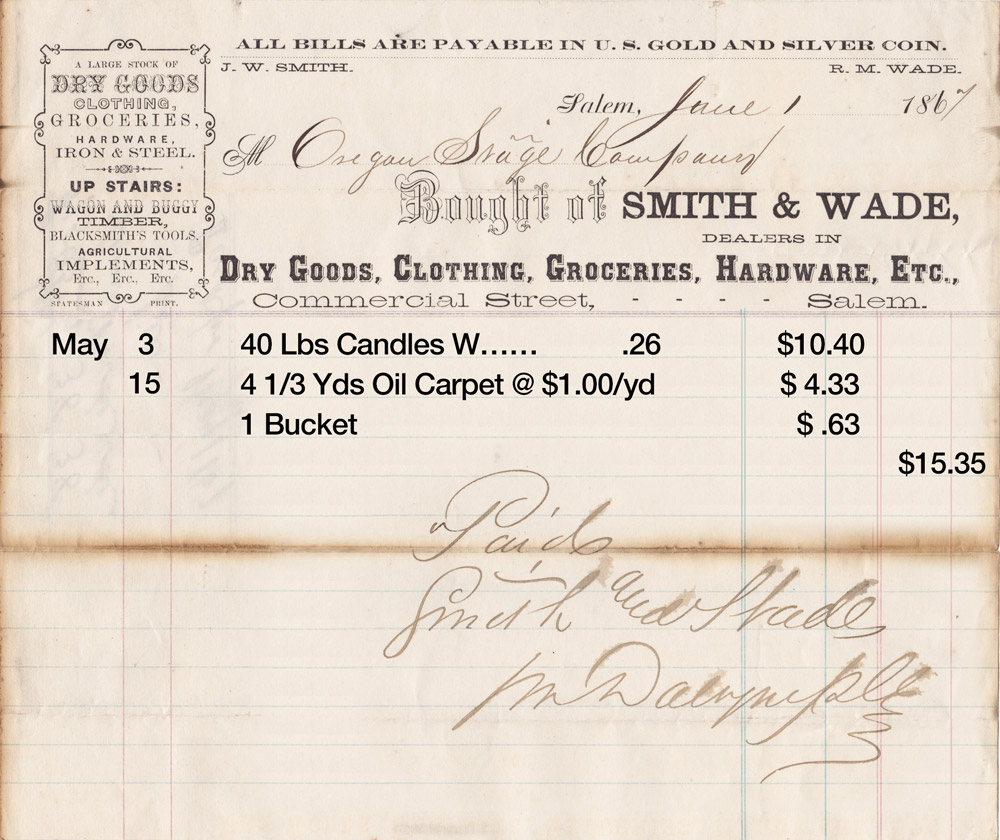 ALL BILLS ARE PAYABLE IN U. S. GOLD AND SILVER COIN.
J. W. SMITH. R. M. WADE.
A LARGE STOCK OF
DRY GOODS
CLOTHING,
GROCERIES,
HARDWARE,
IRON & STEEL.
UP STAIRS:
WAGON AND BUGGY
TIMBER,
BLACKSMITH'S TOOLS.
AGRICULTURAL
IMPLEMENTS,
Etc., Etc., Etc.
STATESMAN PRINT.
Salem, June 1 1867
M Oregon Stage Company
Bought of SMITH & WADE,
DEALERS IN
DRY GOODS, CLOTHING, GROCERIES, HARDWARE, ETC.,
Commercial Street, - - - - Salem.
May 3 40 Lbs Candles W...... .26 $10.40
15 4 1/3 Yds Oil Carpet @ $1.00/yd $ 4.33
1 Bucket $ .63
$15.35
Paid
Smith and Wade
Dalrymple